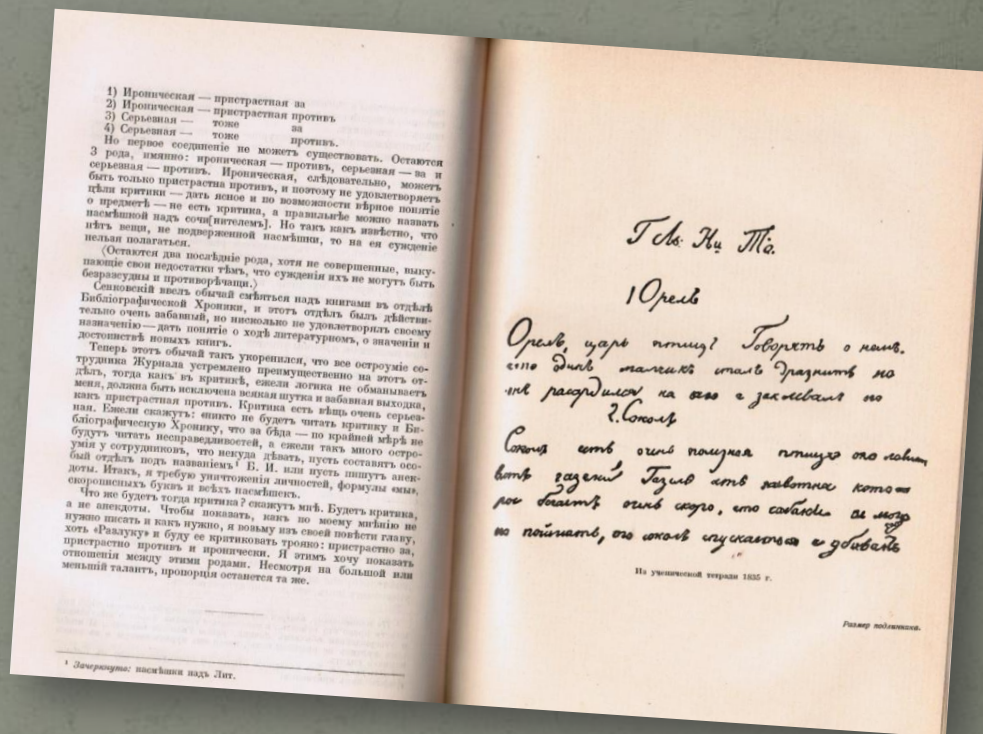 1) Ироническая — пристрастная за
2) Ироническая — пристрастная противъ
3) Серьезная — тоже за
4) Серьезная — тоже противъ.
Но первое соединеніе не можетъ существовать. Остаются
3 рода, имянно: ироническая — противъ, серьезная — за и
серьезная — противъ. Ироническая, слѣдовательно, можетъ
быть только пристрастна противъ, и поэтому не удовлетворяетъ
цѣли критики — дать ясное и по возможности вѣрное понятіе
о предметѣ — не есть критика, а правильнѣе можно назвать
насмѣшкой надъ сочи[нителемъ]. Но такъ какъ извѣстно, что
нѣтъ вещи, не подверженной насмѣшки, то на ея сужденіе
нельзя полагаться.
⟨Остаются два послѣдніе рода, хотя не совершенные, выку-
пающіе свои недостатки тѣмъ, что сужденія ихъ не могутъ быть
безразсудны и противорѣчащи.⟩
Сенковскій ввелъ обычай смѣяться надъ книгами въ отдѣлѣ
Библіографической Хроники, и этотъ отдѣлъ былъ дѣйстви-
тельно очень забавный, но нисколько не удовлетворялъ своему
назначенію — дать понятіе о ходѣ литературномъ, о значеніи и
достоинствѣ новыхъ книгъ.
Теперь этотъ обычай такъ укоренился, что все остроуміе со-
трудника Журнала устремлено преимущественно на этотъ от-
дѣлъ, тогда какъ въ критикѣ, ежели логика не обманываетъ
меня, должна быть исключена всякая шутка и забавная выходка,
какъ пристрастная противъ. Критика есть вѣщь очень серьез-
ная. Ежели скажутъ: «никто не будетъ читать критику и Би-
бліографическую Хронику, что за бѣда — по крайней мѣрѣ не
будутъ читать несправедливостей, а ежели такъ много остро-
умія у сотрудниковъ, что некуда дѣвать, пусть составятъ осо-
бый отдѣлъ подъ названіемъ¹ Б. И. или пусть пишутъ анек-
доты. Итакъ, я требую уничтоженія личностей, формулы «мы»,
скорописныхъ буквъ и всѣхъ насмѣшекъ.
Что же будетъ тогда критика? скажутъ мнѣ. Будетъ критика,
а не анекдоты. Чтобы показать, какъ по моему мнѣнію не
нужно писать и какъ нужно, я возьму изъ своей повѣсти главу,
хоть «Разлуку» и буду ее критиковать трояко: пристрастно за,
пристрастно противъ и иронически. Я этимъ хочу показать
отношенія между этими родами. Несмотря на большой или
меньшій талантъ, пропорція останется та же.
¹ Зачеркнуто: насмѣшки надъ Лит.
Г Ль: Ни То.
1 Орелъ
Орелъ, царь птицъ! Говорятъ о немъ.
что одинъ мальчикъ сталъ дразнить но
онъ расердился на него и заклевалъ его
2. Соколъ
Соколъ есть, очень полезная птица она ловит
газелей Газель есть животное кото
рое бегаетъ очень скоро, что собаки не могу
её поймать, то соколъ спускается и убиваетъ
Из ученической тетради 1835 г.
Размер подлинника.